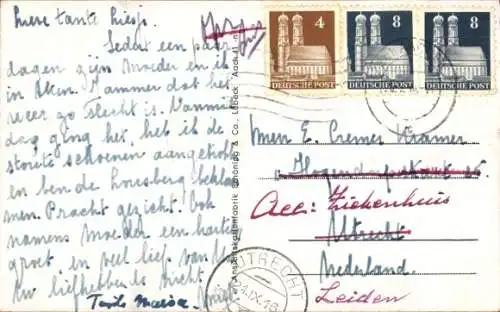 Lieve tante Liesje.
Sedert een paar
dagen zijn Moeder en ik
in Aken. Jammer dat het
weer zo slecht is. Vanmid
dag ging het, heb ik de
stoute schoenen aangetrok
en ben de Lousberg beklom
men. Pracht gezicht. Ook
namens Moeder een hartel
groet, en veel liefs van
Uw liefhebbende nicht
4
DEUTSCHE POST
8
DEUTSCHE POST
8
DEUTSCHE POST
Ansichtskartenfabrik Schöning & Co., Lübeck
Mevr E. Cremer
Acc: Ziekenhuis
Utrecht
Nederland.
Leiden
UTRECHT